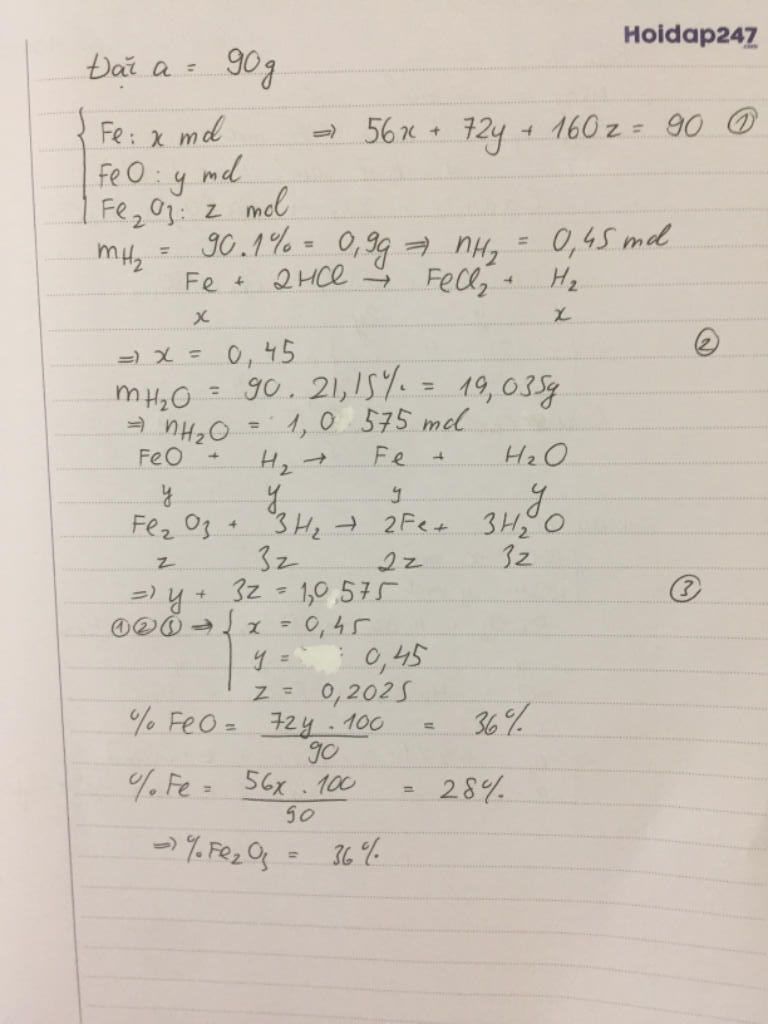 Hoidap247
.com
Đặt a = 90g
Fe: x mol ⇒ 56x + 72y + 160z = 90 ①
FeO: y mol
Fe₂O₃: z mol
mH₂ = 90.1% = 0,9g ⇒ nH₂ = 0,45 mol
Fe + 2HCl → FeCl₂ + H₂
x x
⇒ x = 0,45 ②
mH₂O = 90.21,15% = 19,035g
⇒ nH₂O = 1,0 575 mol
FeO + H₂ → Fe + H₂O
y y y y
Fe₂O₃ + 3H₂ → 2Fe + 3H₂O
z 3z 2z 3z
⇒ y + 3z = 1,0575 ③
①②③ ⇒ { x = 0,45
y = 0,45
z = 0,2025
% FeO = 72y . 100 / 90 = 36%
% Fe = 56x . 100 / 90 = 28%
⇒ % Fe₂O₃ = 36%